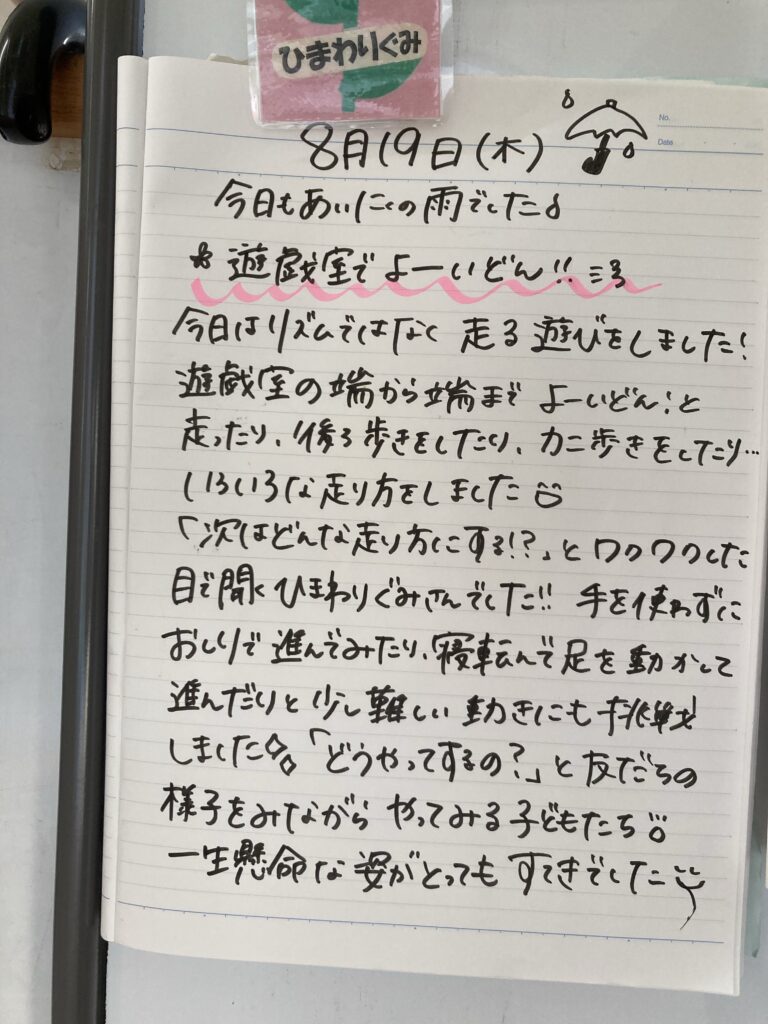 ひまわりぐみ
No.
Date
8月19日(木)
今日もあいにくの雨でした
☆ 遊戯室で よーいどん!!
今日はリズムではなく 走る 遊びをしました!
遊戯室の端から端まで よーいどん!と
走ったり、後ろ歩きをしたり、カニ歩きをしたり…
いろいろな走り方をしました
「次はどんな走り方にする!?」とワクワクした
目で聞くひまわりぐみさんでした!! 手を使わずに
おしりで 進んでみたり、寝転んで足を動かして
進んだりと 少し難しい動きにも 挑戦
しました 「どうやってするの?」と友だちの
様子をみながら やってみる子どもたち
一生懸命な姿がとっても すてきでした